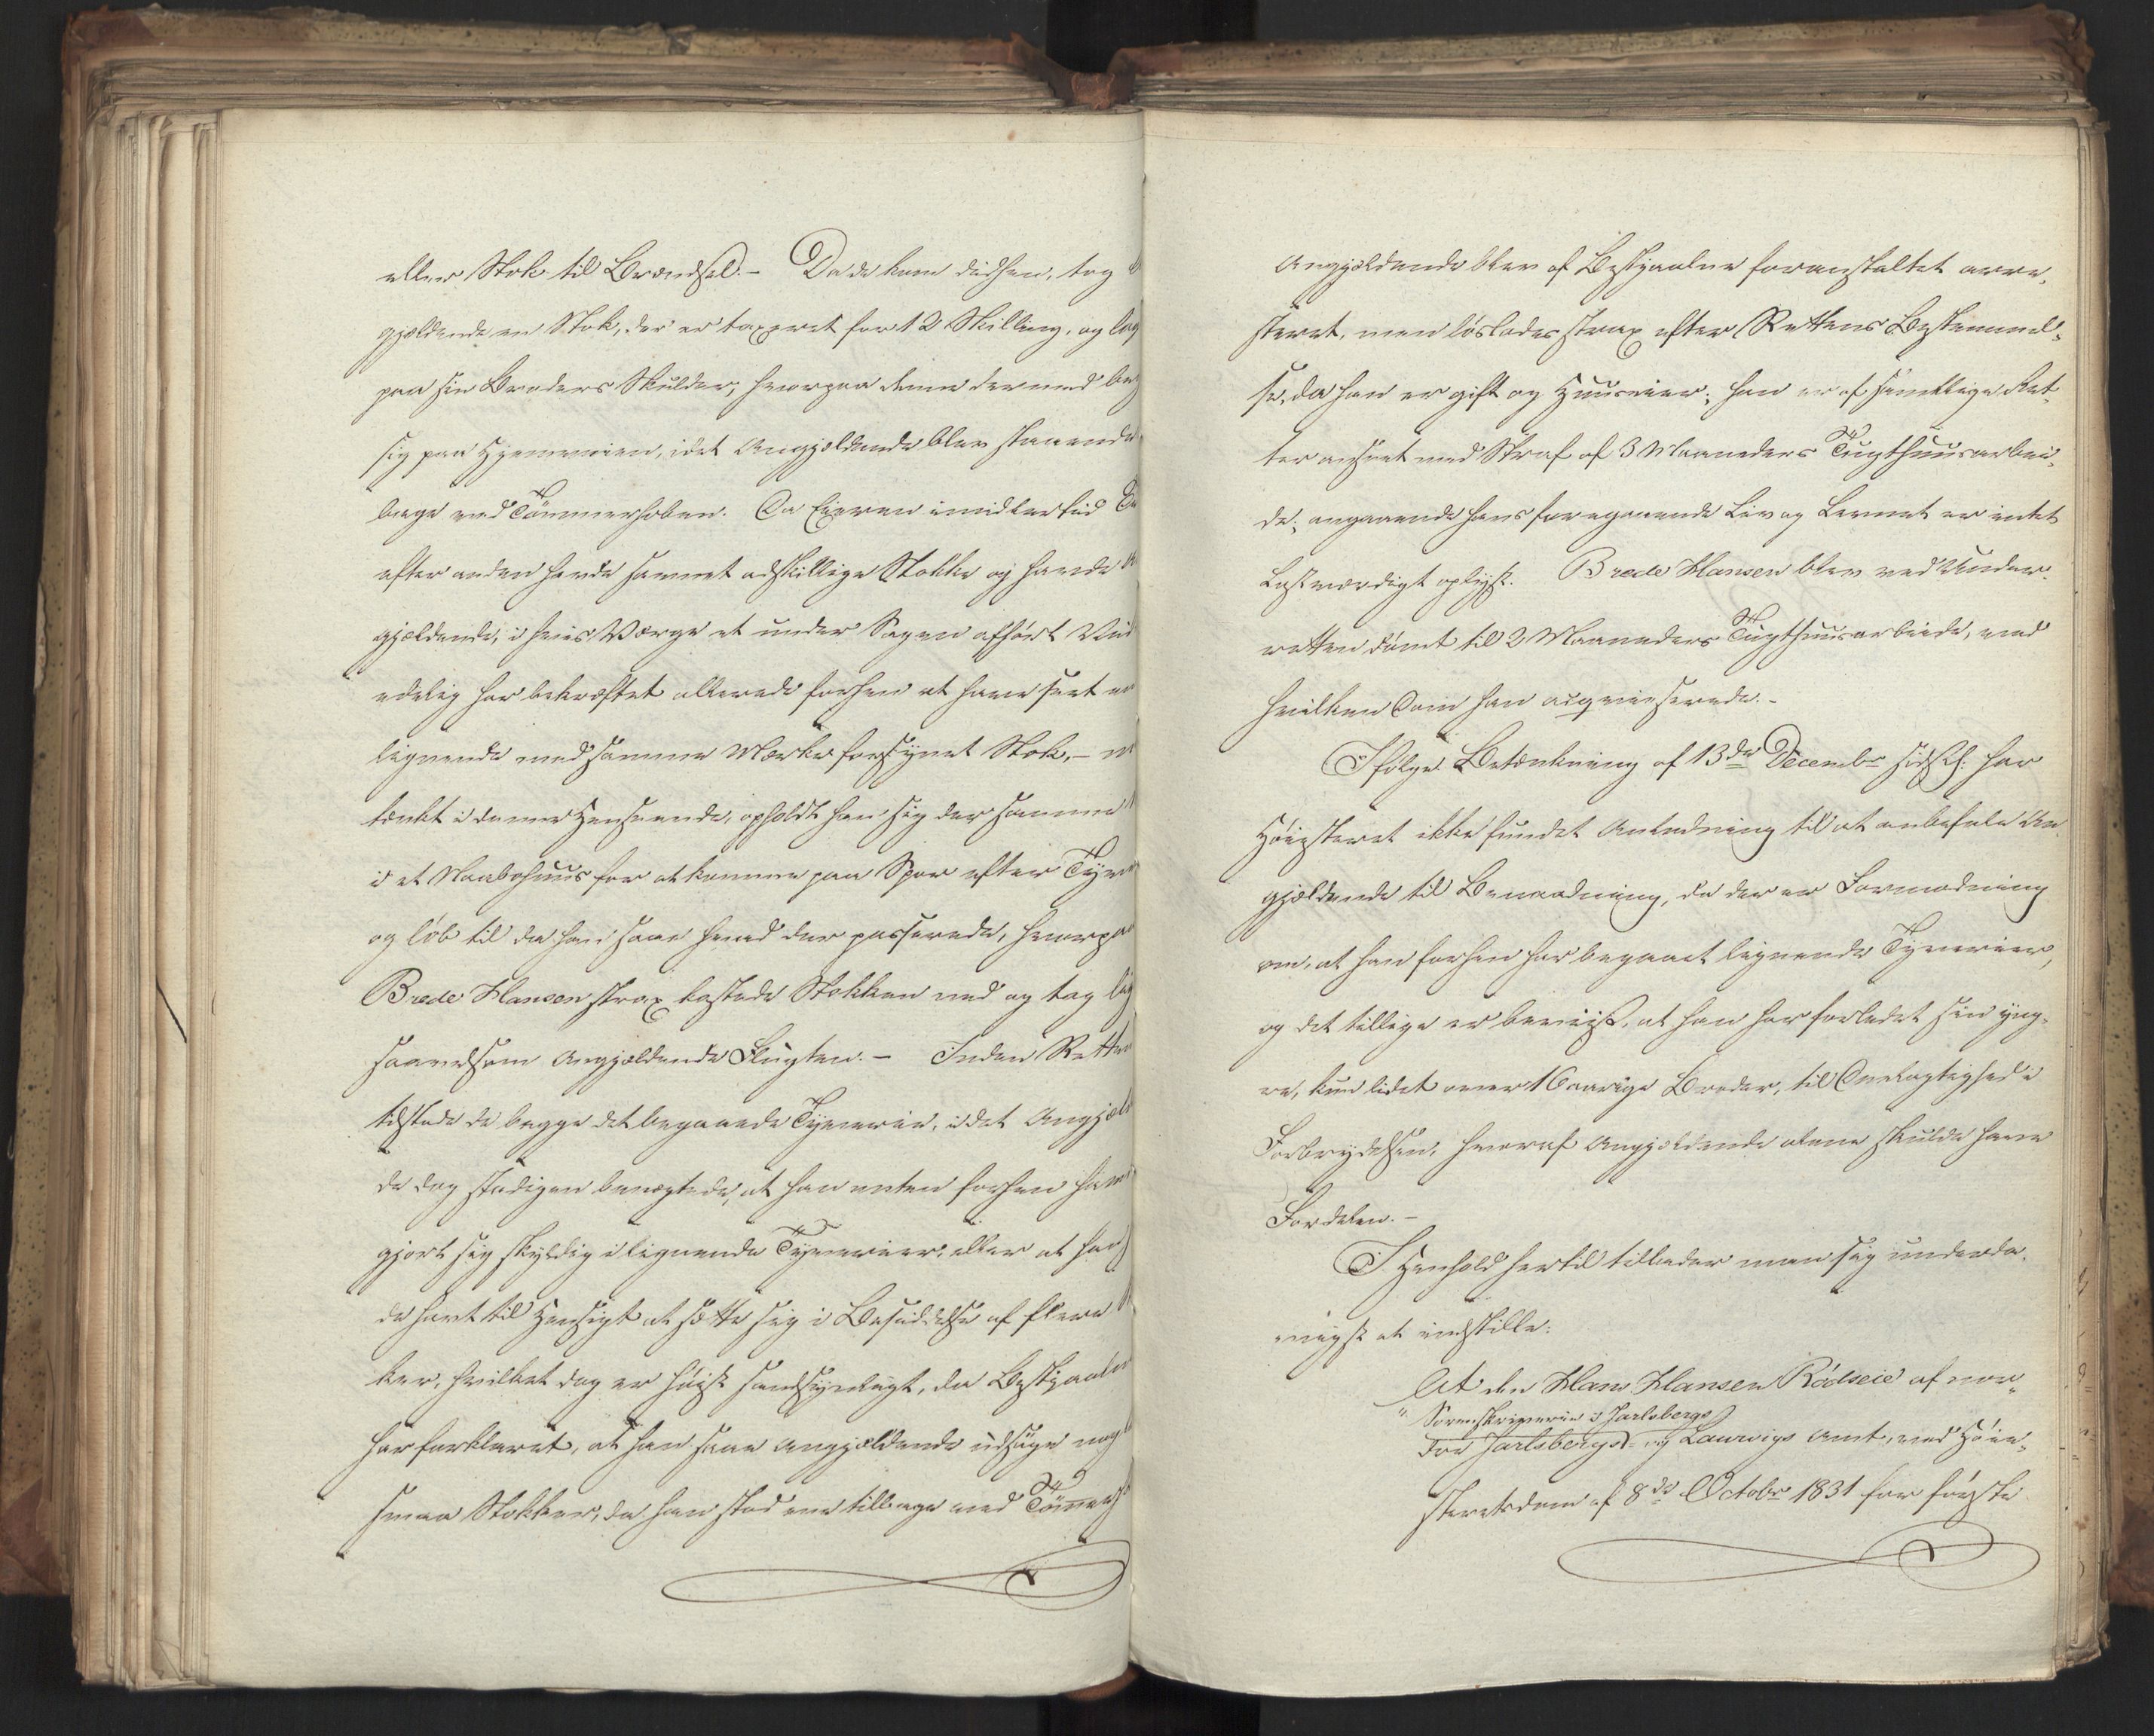 eller Stok til Brændsel. – Da de kom didhen, tog
gjældende en Stok, der er taxeret for 12 Skilling, og lag
paa sin Broders Skulder, hvorpaa denne dermed beg
sig paa Hjemveien, idet Angjældende blev staaende
bage ved Tømmerhoben. Da Eieren imidlertid
efter anden havde savnet adskillige Stokke og havde
gjældende, i hvis Værge et under Sagen afhørt Vid
edelig har bekræftet allerede forhen at have seet en
lignende med samme Mærke forsynet Stok, –
tænkt i denne Henseende, opholdt han sig der samme
i et Nabohuus for at komme paa Spor efter Tyve
og løb til da han saae hvad der passerede, hvorpaa
Brede Hansen strax kastede Stokken ned og tog
saavelsom Angjældende Flugten. – Inden Retten
tilstode de begge det begaaede Tyverie, idet Angjæl
de dog stedigen benægtede, at han enten forhen hav
gjort sig skyldig i lignende Tyverier, eller at hav
de havt til Hensigt at sætte sig i Besiddelse af flere
ker, hvilket dog er høist sandsynligt, da Bestjaalne
har forklaret, at han saae Angjældende udsøge nog
smaa Stokker, da han stod ene tilbage ved Tømmerh
Angjældende blev af Bestjaalne foranstaltet arre-
steret, men løslades strax efter Rettens Bestemmel-
se, da han er gift og Huuseier; han er af samtlige Ret-
ter anseet med Straf af 3 Maaneders Tugthuusarbei-
de; angaaende hans foregaaende Liv og Levnet er intet
Lastværdigt oplyst. Brede Hansen blev ved Under-
retten dømt til 2 Maaneders Tugthuusarbeide, ved
hvilken Dom han acqviescerede. –
Ifølge Betænkning af 13de Decembr sidstl: har
Høiesteret ikke fundet Anledning til at anbefale An-
gjældende til Benaadning, da der er Formodning
om, at han forhen har begaaet lignende Tyverier,
og det tillige er beviist, at han har forledet sin yng-
re, kun lidet over 16aarige Broder, til Deelagtighed i
Forbrydelsen, hvoraf Angjældende alene skulde have
Fordelen. –
I Henhold hertil tillader man sig underda-
nigst at indstille:
At den Hans Hansen Rødseie af nor-
" Sorenskriverie i Jarlsbergs
dre Jarlsbergs- og Laurvigs Amt, ved Høie-
steretsdom af 8de Octobr 1831 for første